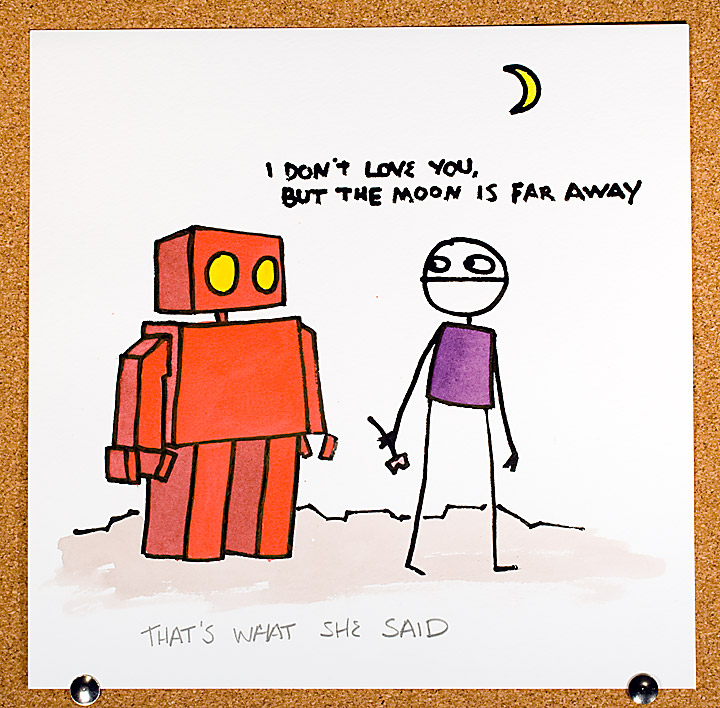 I DON'T LOVE YOU,
BUT THE MOON IS FAR AWAY
THAT'S WHAT SHE SAID